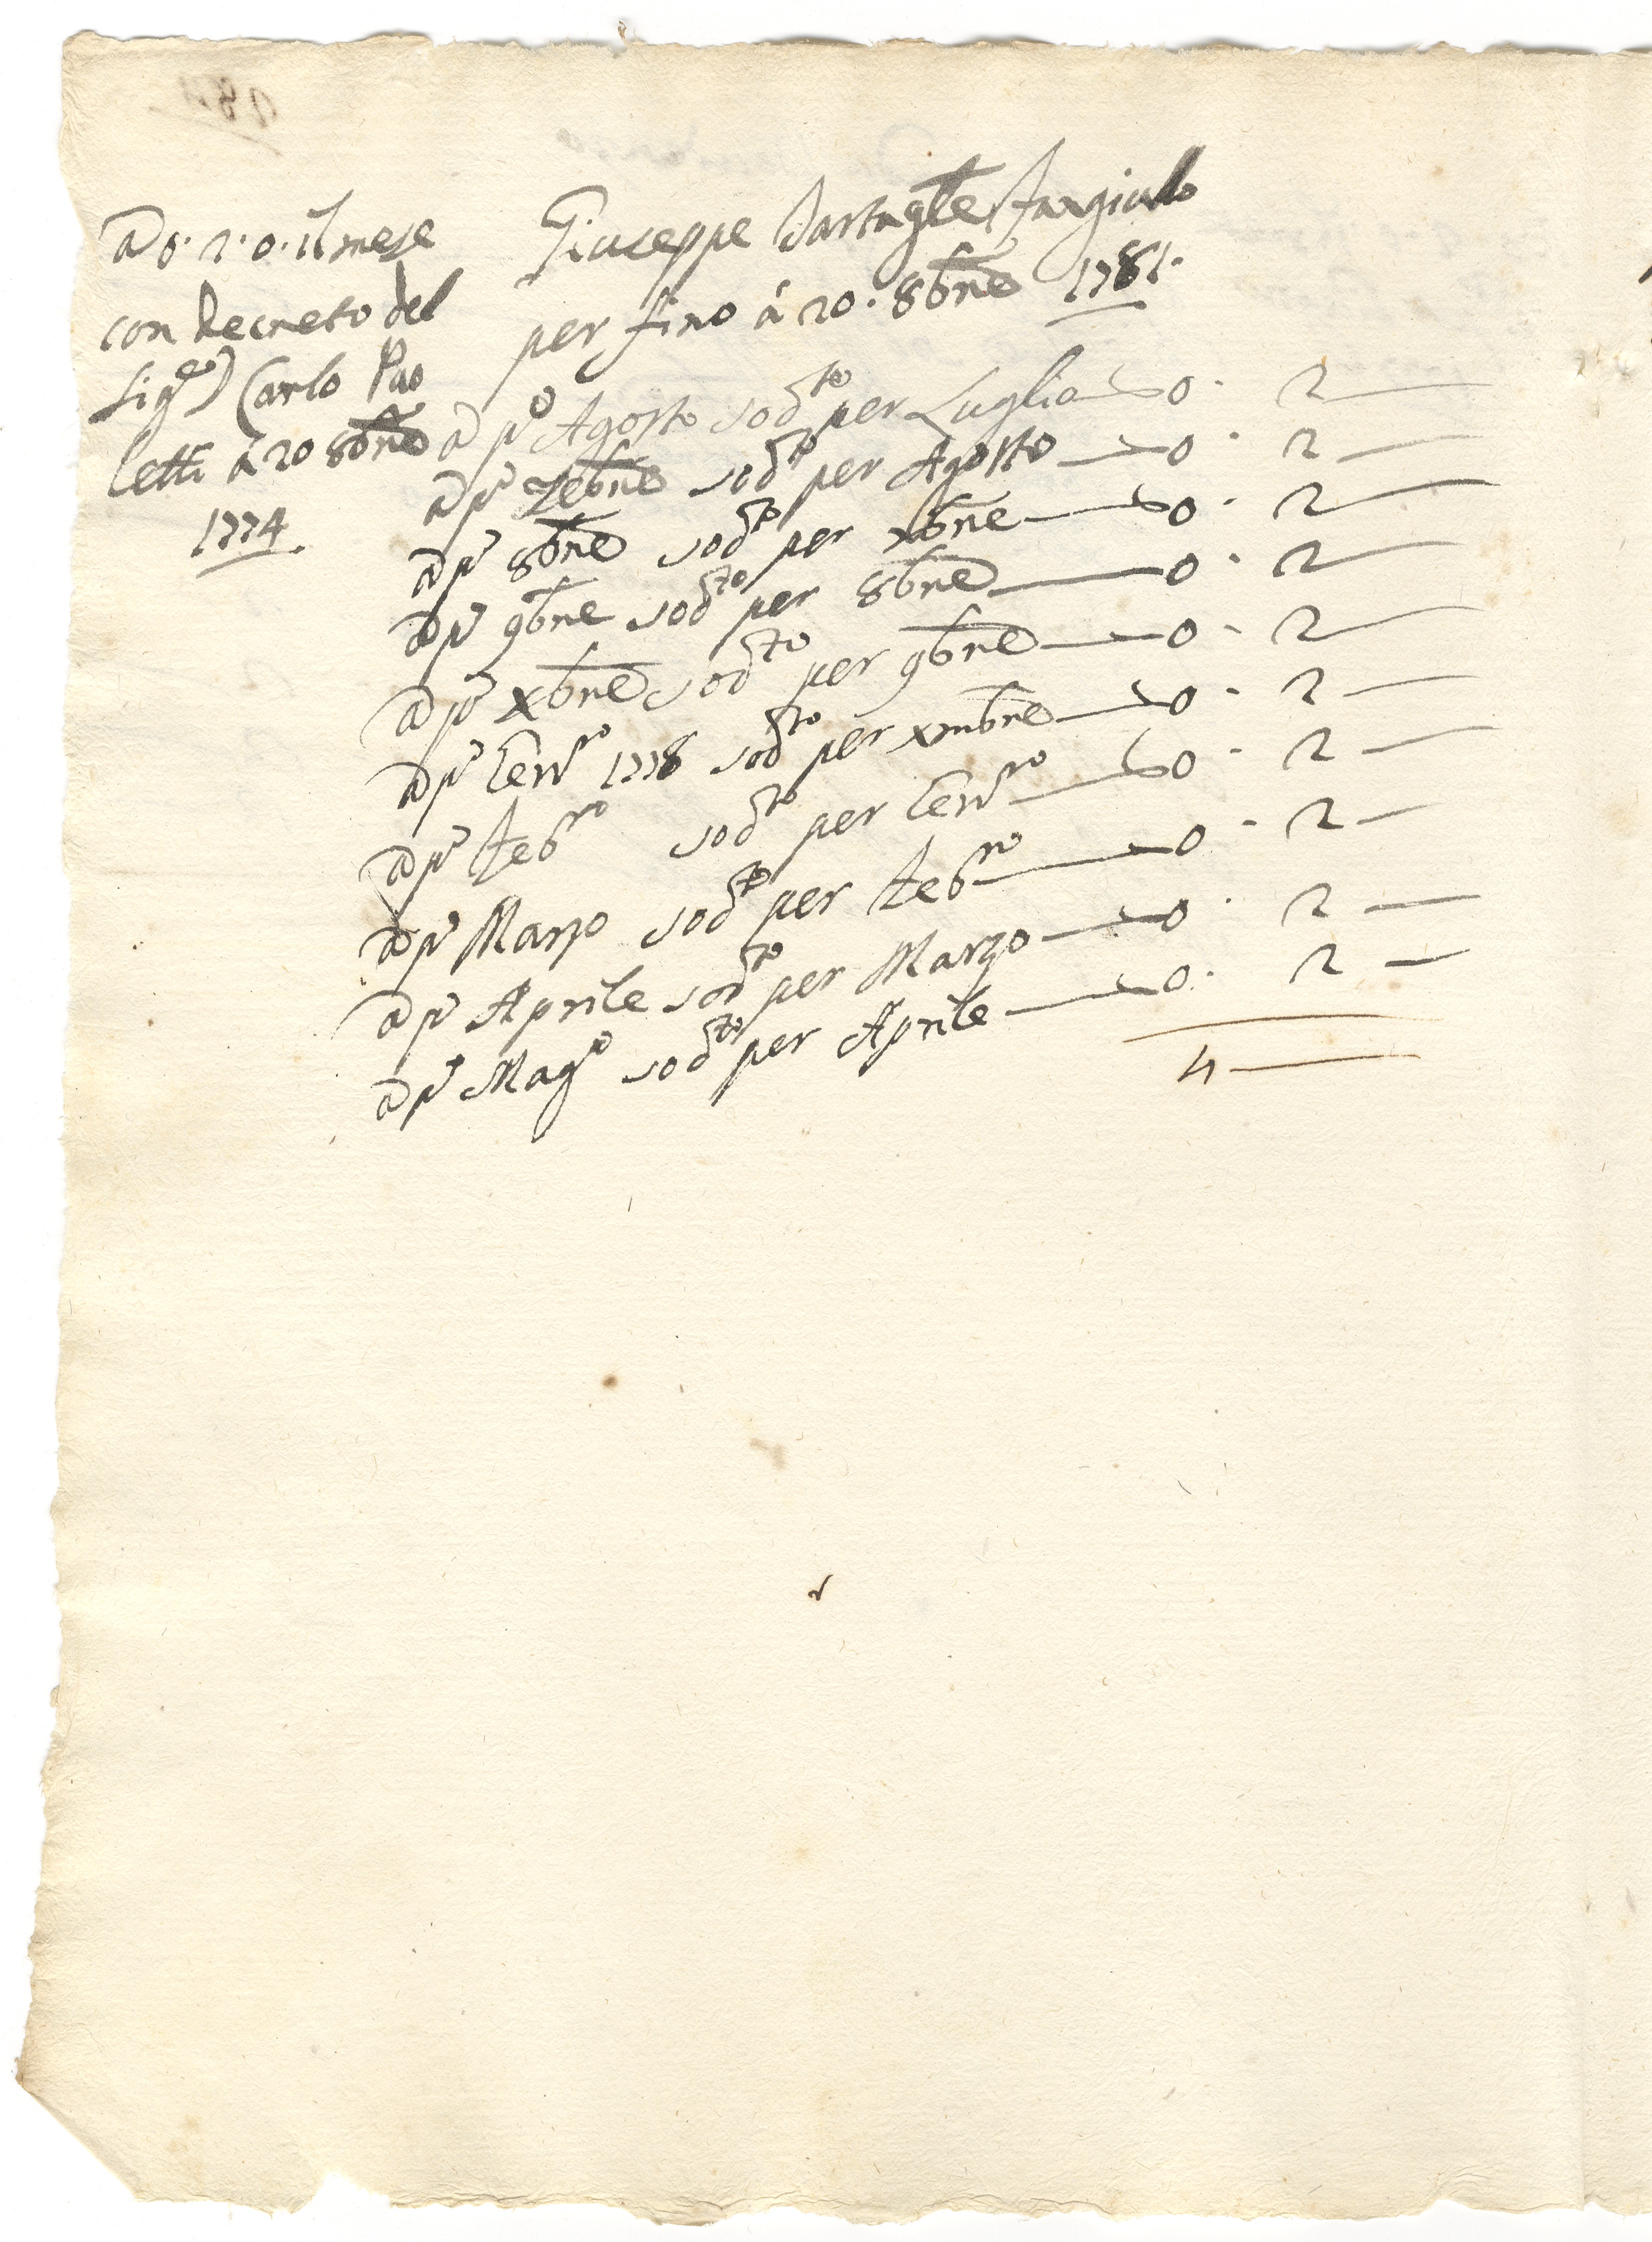 a 0. 2. 0. il mese
con decreto del
Sig.re Carlo Pao
letti à 20 8bre
1774
Giuseppe
per fino à 20. 8bre 1781.
a p.o Agosto sod.to per Luglio 0. 2
a p.o 7bre sod.to per Agosto 0. 2
a p.o 8bre sod.to per 7bre 0. 2
a p.o 9bre sod.to per 8bre 0. 2
a p.o Xbre sod.to per 9bre 0. 2
a p.o Genn.ro 1778 sod.to per Xmbre 0. 2
a p.o Feb.ro sod.to per Genn.ro 0. 2
a p.o Marzo sod.to per Feb.ro 0. 2
a p.o Aprile sod.to per Marzo 0. 2
a p.o Mag.o sod.to per Aprile 0. 2
4